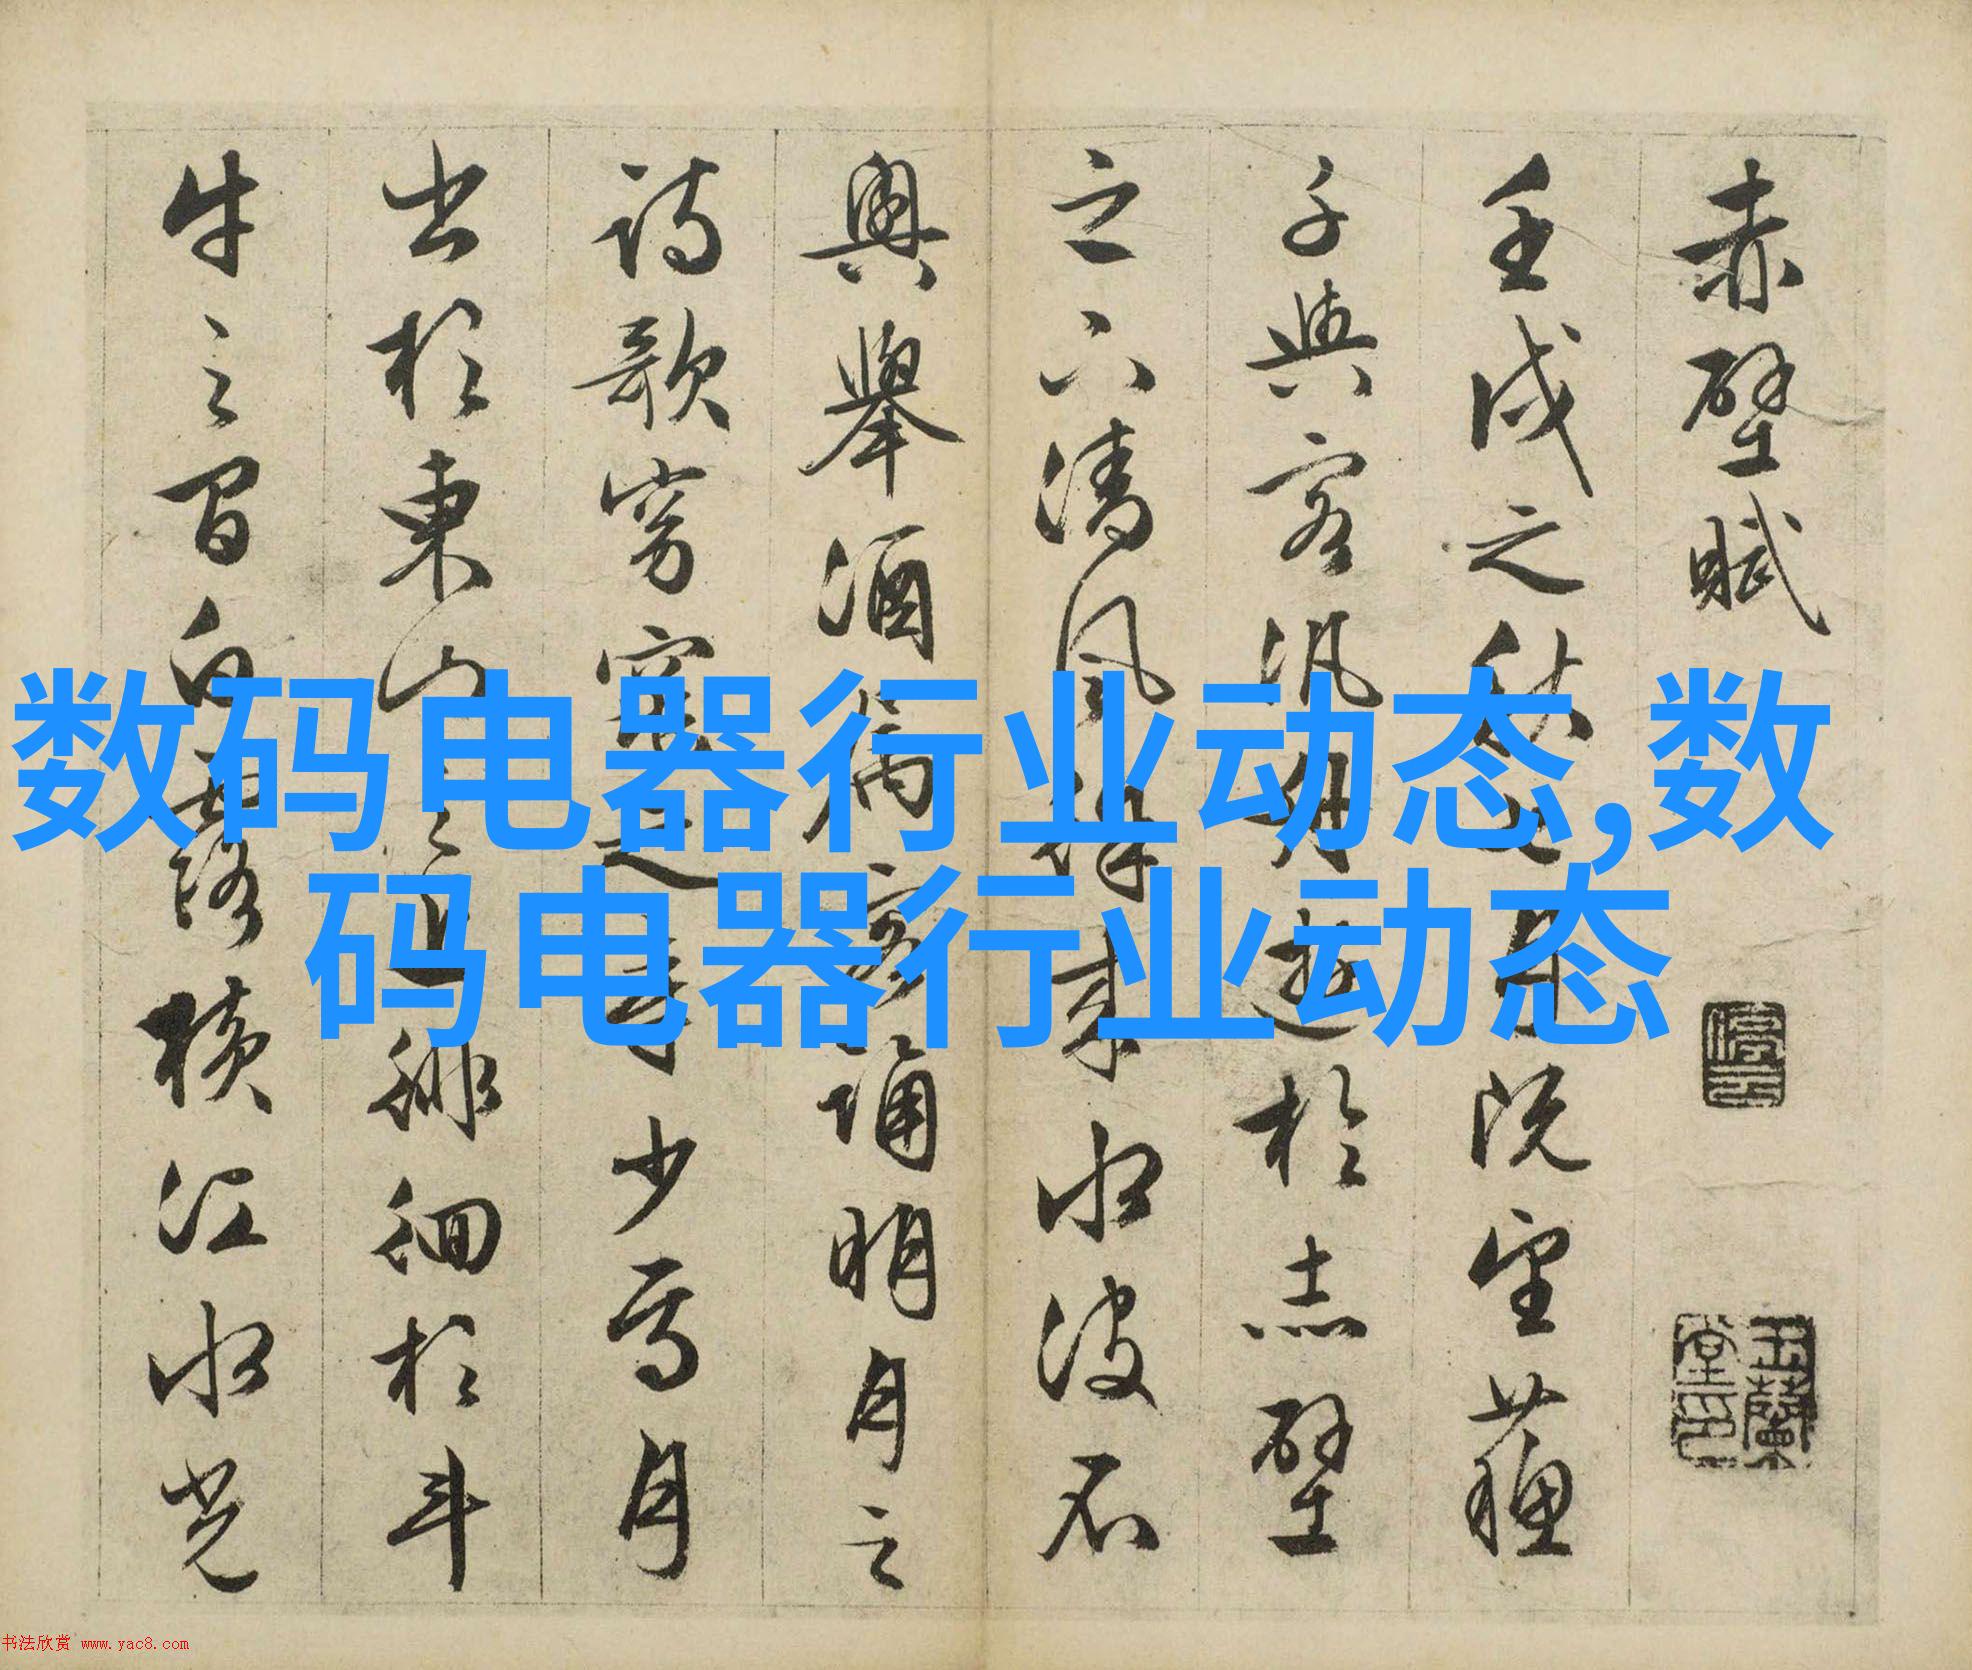 赤壁賦
壬戌之秋七月既望蘇
子與客汎舟遊於赤壁
之下清風徐來水波不
興舉酒屬客誦明月之
詩歌窈窕之章少焉月
出於東山之上徘徊於斗
牛之間白露橫江水光
停雲
玉蘭堂印
数码电器行业动态,数
码电器行业动态
书法欣赏 www.yac8.com